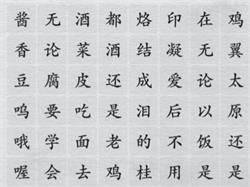 酱无酒都烙印在鸡
香论菜酒结凝无翼
豆腐皮还成爱论太
呜要吃是泪后以原
哦学面老的不饭还
喔会去鸡桂用是是